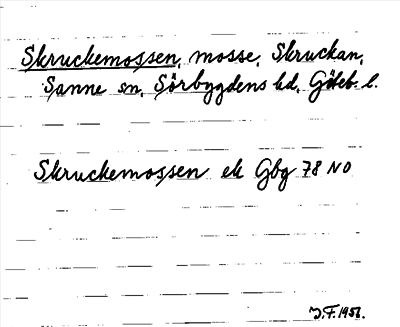 Skruckemossen, mosse, Skruckan,
Sanne sn, Sörbygdens hd, Göteb. l.
Skruckemossen ek Gbg 78 NO
J.F. 1951.